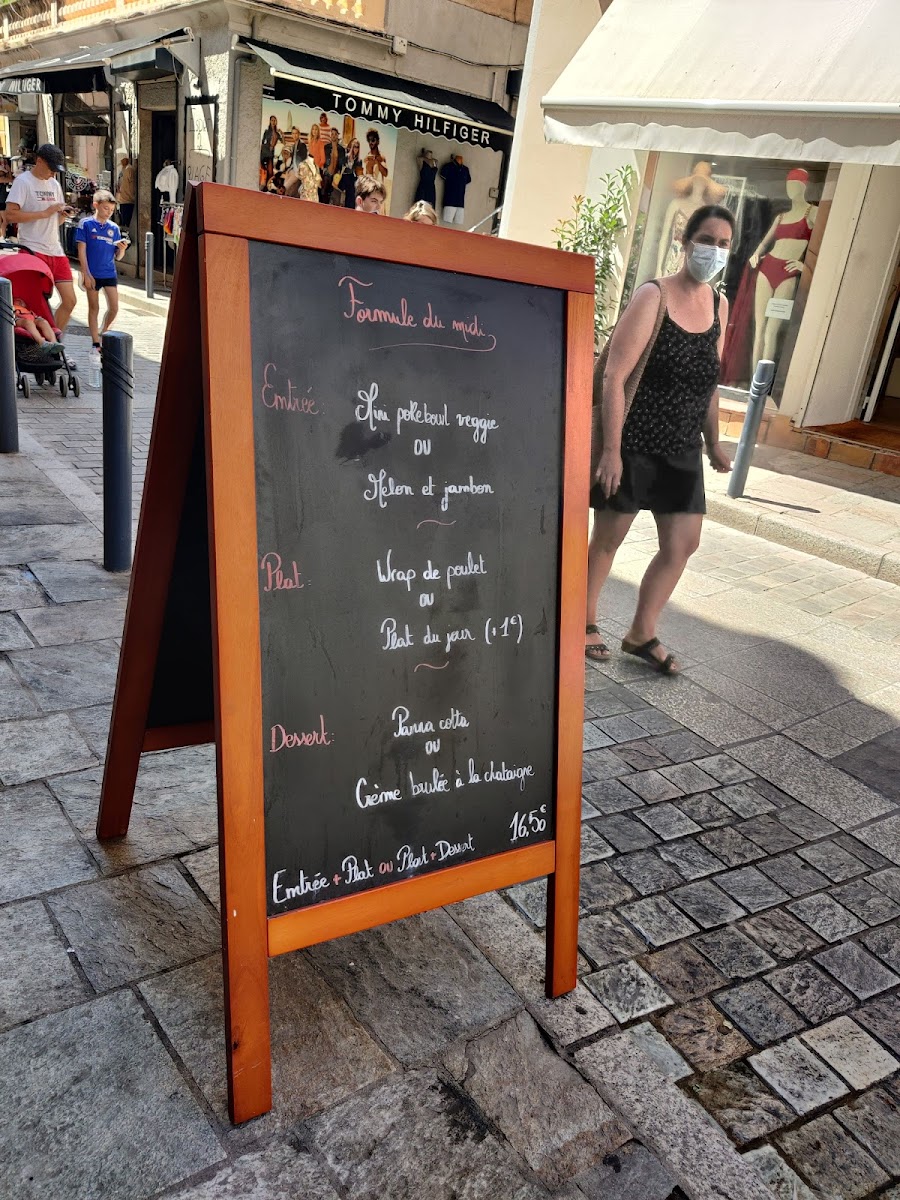 HILFIGER
TOMMY HILFIGER
TOMMY
Formule du midi
Entrée:
Mini pokebowl veggie
OU
Melon et jambon
Plat:
Wrap de poulet
ou
Plat du jour (+1€)
Dessert:
Panna cotta
ou
Crème brulée à la chataigne
16,50€
Entrée + Plat ou Plat + Dessert